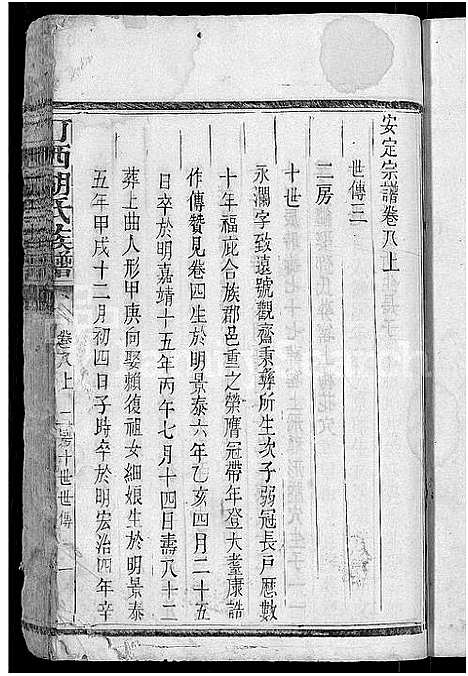 安定宗譜卷八上
世傳三
二房
十世
永瀾字致遠號觀齋秉彝所生次子弱冠長戶歷數
十年福庇合族郡邑重之榮膺冠帶年登大耋康誥
作傳贊見卷四生於明景泰六年乙亥四月二十五
日卒於明嘉靖十五年丙午七月十四日壽八十二
葬上曲人形甲庚向娶賴復祖女細娘生於明景泰
五年甲戌十二月初四日子時卒於明宏治四年辛
西胡氏族譜
卷八上
二房十世世傳
一